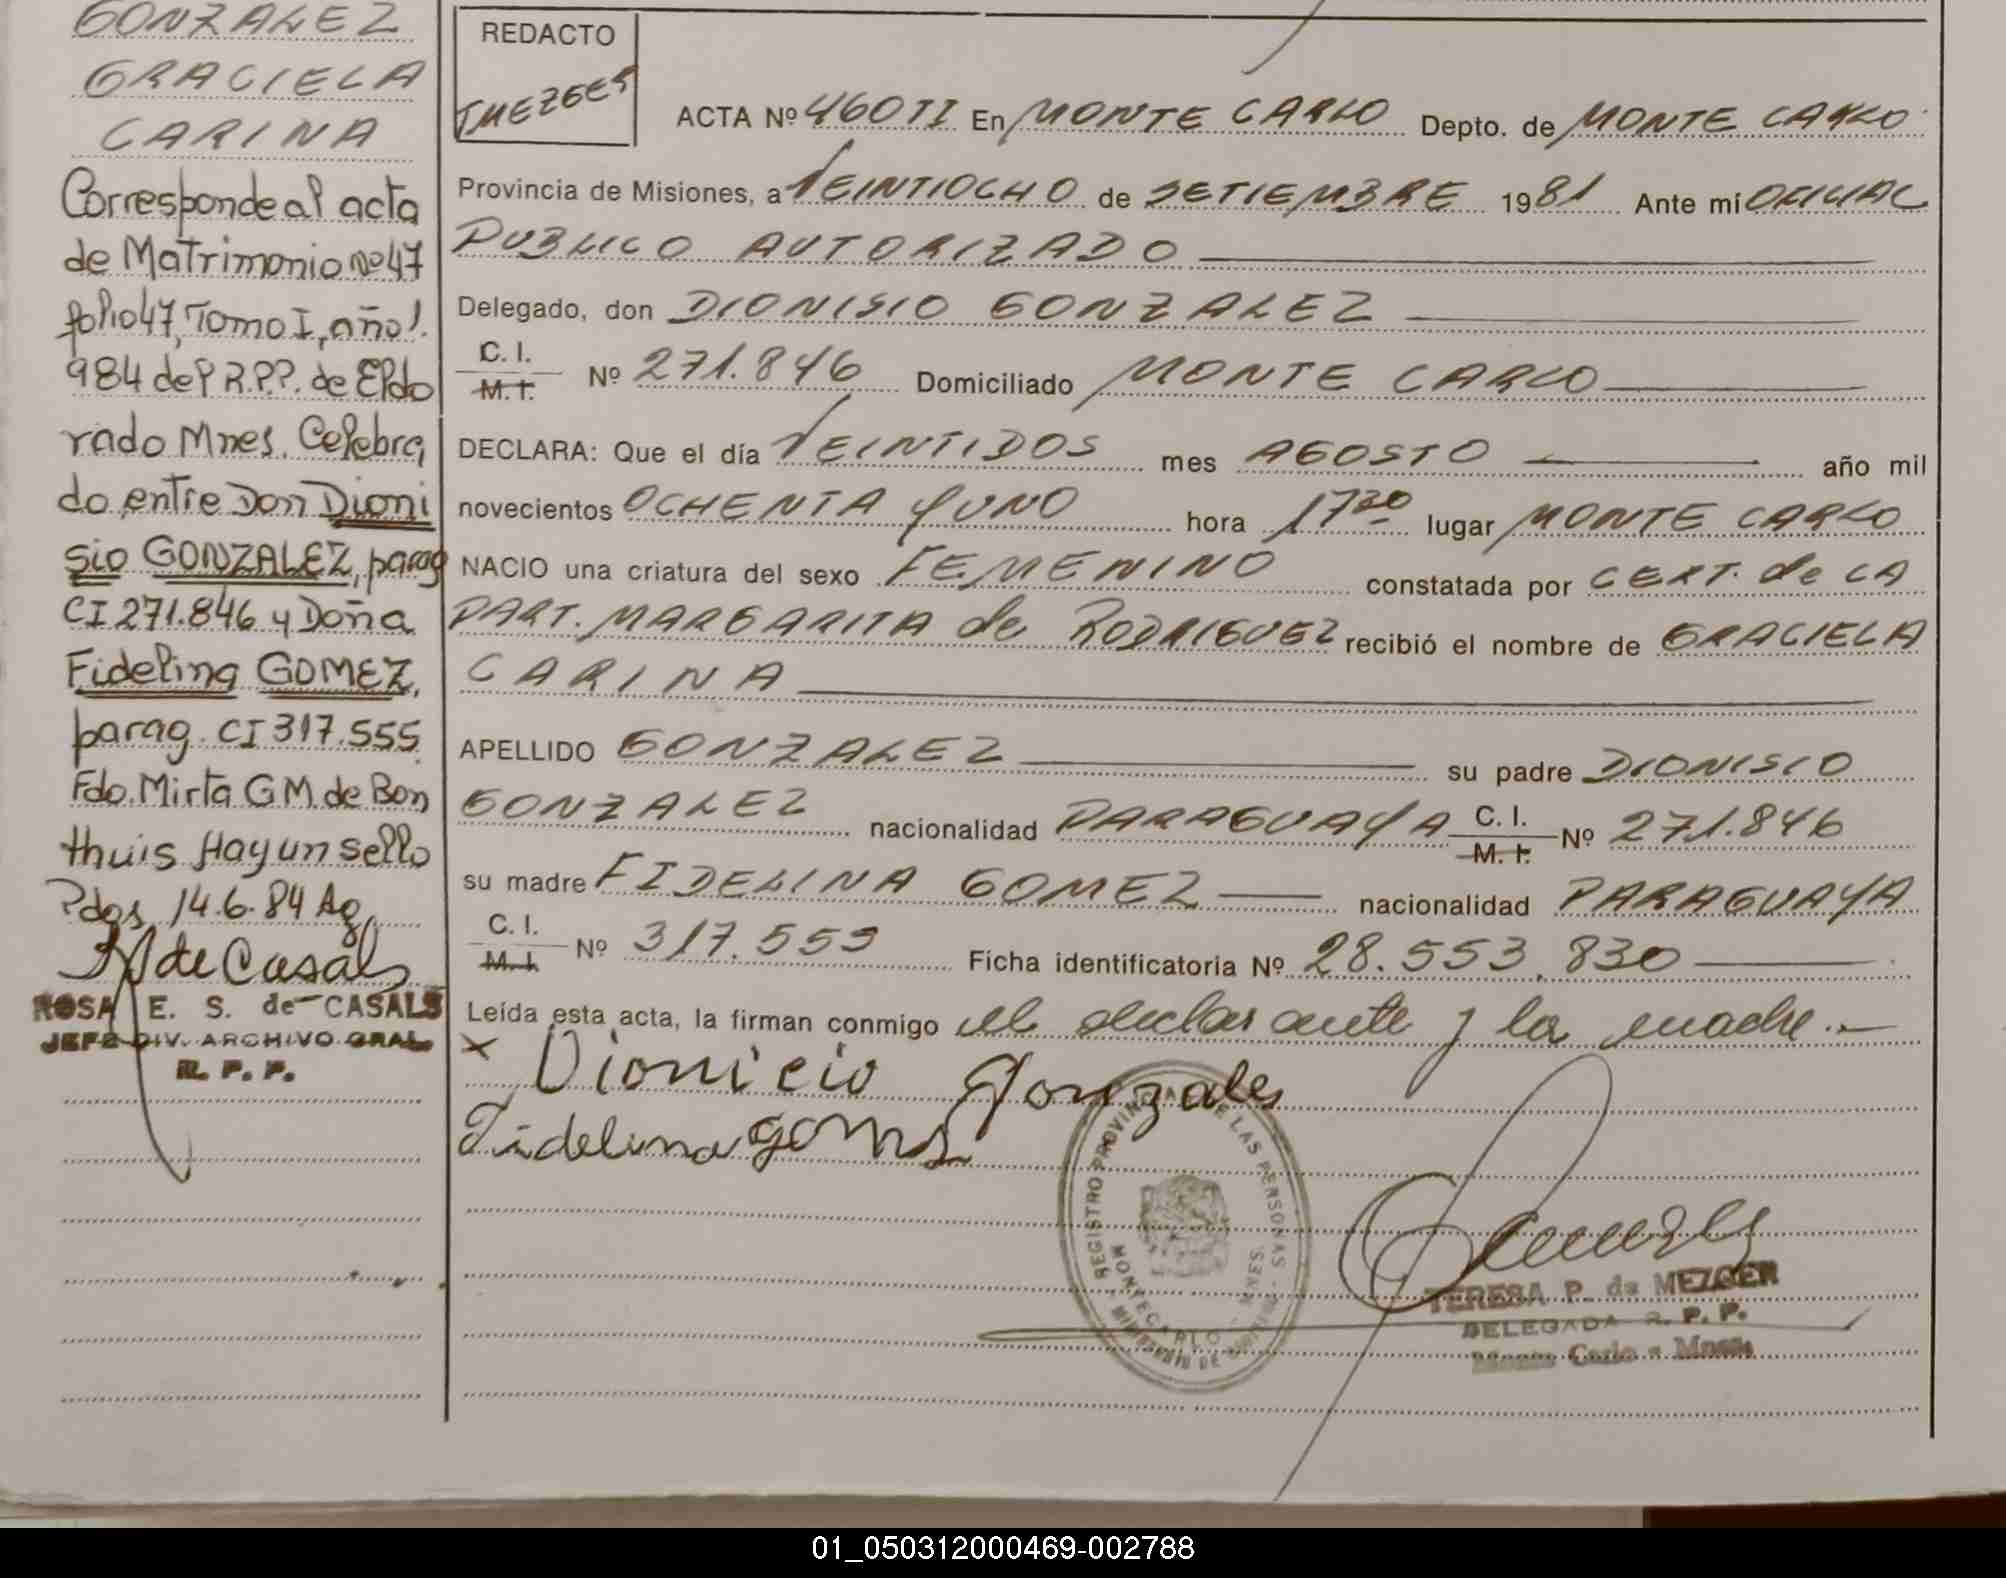 GONZALEZ
GRACIELA
CARINA
Corresponde al acta
de Matrimonio Nº 47
folio 47, Tomo I, año 1.
984 del R.P.P. de Eldo
rado Mnes. Celebra
do entre Don Dioni
sio GONZALEZ, parag
CI 271.846 y Doña
Fidelina GOMEZ,
parag. CI 317.555
Fdo. Mirta G M. de Bon
thuis Hay un sello
Pdas 14.6.84 Ag.
de Casals
ROSA E. S. de CASALS
JEFE DIV. ARCHIVO GRAL
R. P. P.
REDACTO
TMEZGER
ACTA Nº 460 TI En MONTE CARLO Depto. de MONTE CARLO
Provincia de Misiones, a VEINTIOCHO de SETIEMBRE 1981 Ante mí OFICIAL
PUBLICO AUTORIZADO
Delegado, don DIONISIO GONZALEZ
C. I.
M. I. Nº 271.846 Domiciliado MONTE CARLO
DECLARA: Que el día VEINTIDOS mes AGOSTO año mil
novecientos OCHENTA Y UNO hora 17 30 lugar MONTE CARLO
NACIO una criatura del sexo FEMENINO constatada por CERT. de LA
PART. MARGARITA de RODRIGUEZ recibió el nombre de GRACIELA
CARINA
APELLIDO GONZALEZ su padre DIONISIO
GONZALEZ nacionalidad PARAGUAYA C. I. M. I. Nº 271.846
su madre FIDELINA GOMEZ nacionalidad PARAGUAYA
C. I.
M. I. Nº 317.555 Ficha identificatoria Nº 28.553.830
Leída esta acta, la firman conmigo el declarante y la madre.-
x Dionicio Gonzales
Fidelina gomes
REGISTRO PROVINCIAL DE LAS PERSONAS
MONTECARLO - MNES.
MINISTERIO DE GOBIERNO
TERESA P. de MEZGER
DELEGADA R. P. P.
Monte Carlo - Mnes.
01_050312000469-002788